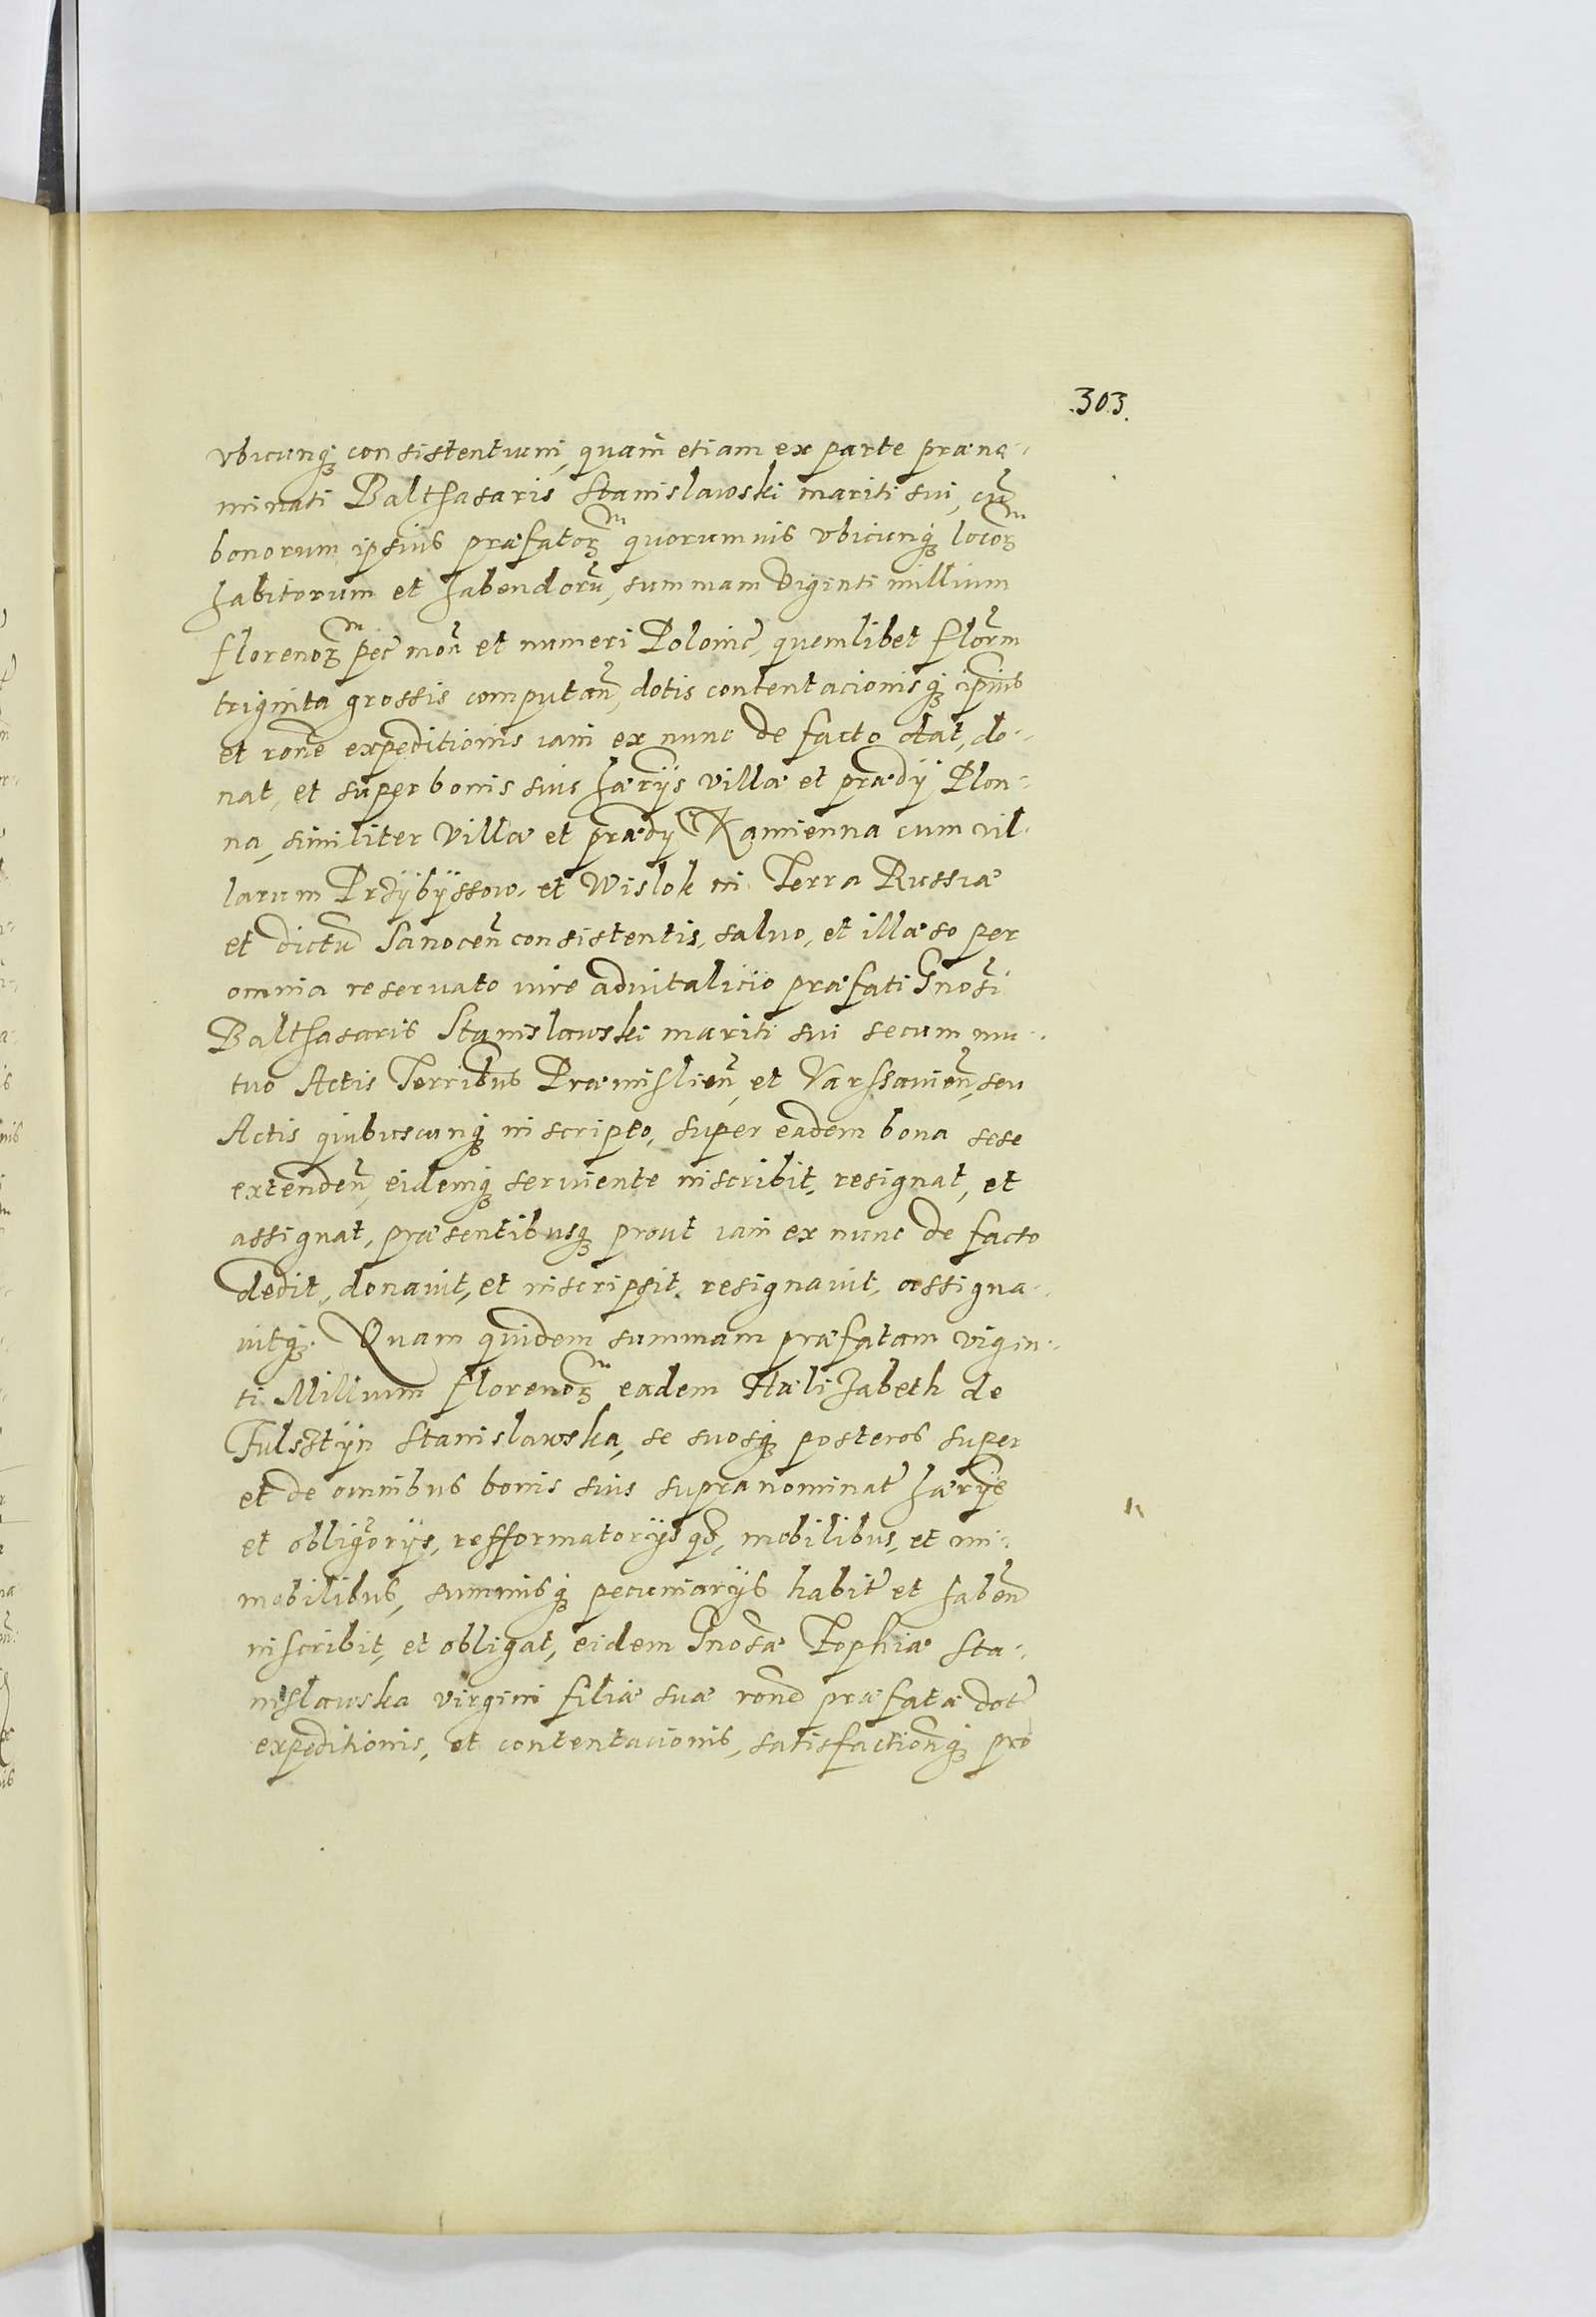 .303.
vbicunq₃ consistentium, quam etiam ex parte præno-
minati Balthasaris Stanislawski mariti sui, cũ
bonorum ipsius præfatorᵐ quorumuis vbicunq₃ locorᵐ
habitorum et habendorũ, summam Viginti millium
florenorᵐ pec̃ moñ et numeri Polonic̃, quemlibet florm̃
triginta grossis computan̄, dotis contentacionisq₃ ipsius
et rōne expeditionis iam ex nunc de facto dat, do-
nat, et super bonis suis hærijs villæ et prædij Plon-
na, similiter Villæ et prædij Kamienna cum vil-
larum Przÿbÿssow et Wislok in Terra Russiæ
et dictũ Sanocen̄ consistentis, saluo, et illæso per
omnia reseruato iure aduitalicio præfati Gnosi
Balthasaris Stanislawski mariti sui secum mu-
tuo Actis Terribus Præmislien̄, et Varssauien̄, seu
Actis quibuscunq₃ inscripto, super eadem bona sese
extenden̄, eidemq₃ seruiente inscribit, resignat, et
assignat, præsentibusq₃ prout iam ex nunc de facto
dedit, donauit, et inscripsit, resignauit, assigna-
uitq₃. Quam quidem summam præfatam vigin-
ti Millium florenorᵐ eadem Hælizabeth de
Fulsztÿn Stanislawska, se suosq₃ posteros super
et de omnibus bonis suis supranominat̃ hærijs
et obligorijs, refformatorijsq₃, mobilibus, et im-
mobilibus, summisq₃ pecuniarijs habit̃ et haben̄
inscribit, et obligat, eidem Gnosæ Zophiæ Sta-
nislawska virgini filiæ suæ rōne præfatæ dot̃
expeditionis, et contentacionis, satisfactionq₃ pro